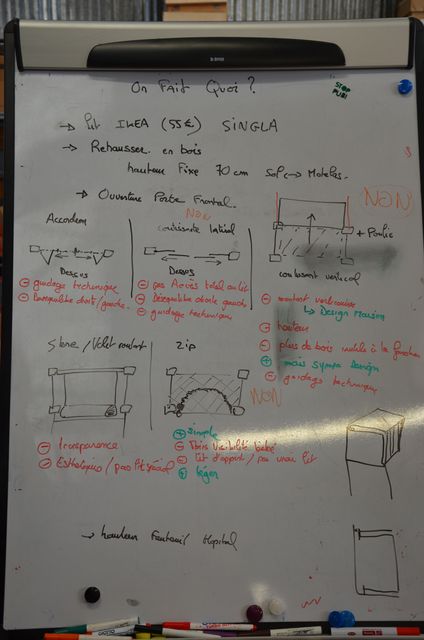 On Fait Quoi?
STOP PUB!
→ Lit IKEA (55€) SINGLA
→ Rehausser en bois
hauteur Fixe 70cm Sol → Matelas.
→ Ouverture Porte Frontal.
NON
Accordéon
NON
coulissante latéral
+ Poulie
Dessus
Dessus
coulissant vertical
⊖ guidage technique
⊖ Déséquilibre droite/gauche.
⊖ pas Accès total au lit
⊖ Déséquilibre droite gauche
⊖ guidage technique
⊖ montant verticaux
↳ Design Maison
⊖ hauteur
⊖ plus de bois inutile à la fonction
⊕ mais sympa Design
⊖ guidage technique
Store/Volet roulant
Zip
NON
⊖ transparence
⊖ Esthétique/pas lit spécial
⊕ simple
⊖ Très visibilité bébé
⊖ lit d'appoint/pas vrai lit
⊕ léger
→ hauteur Fauteuil Hopital